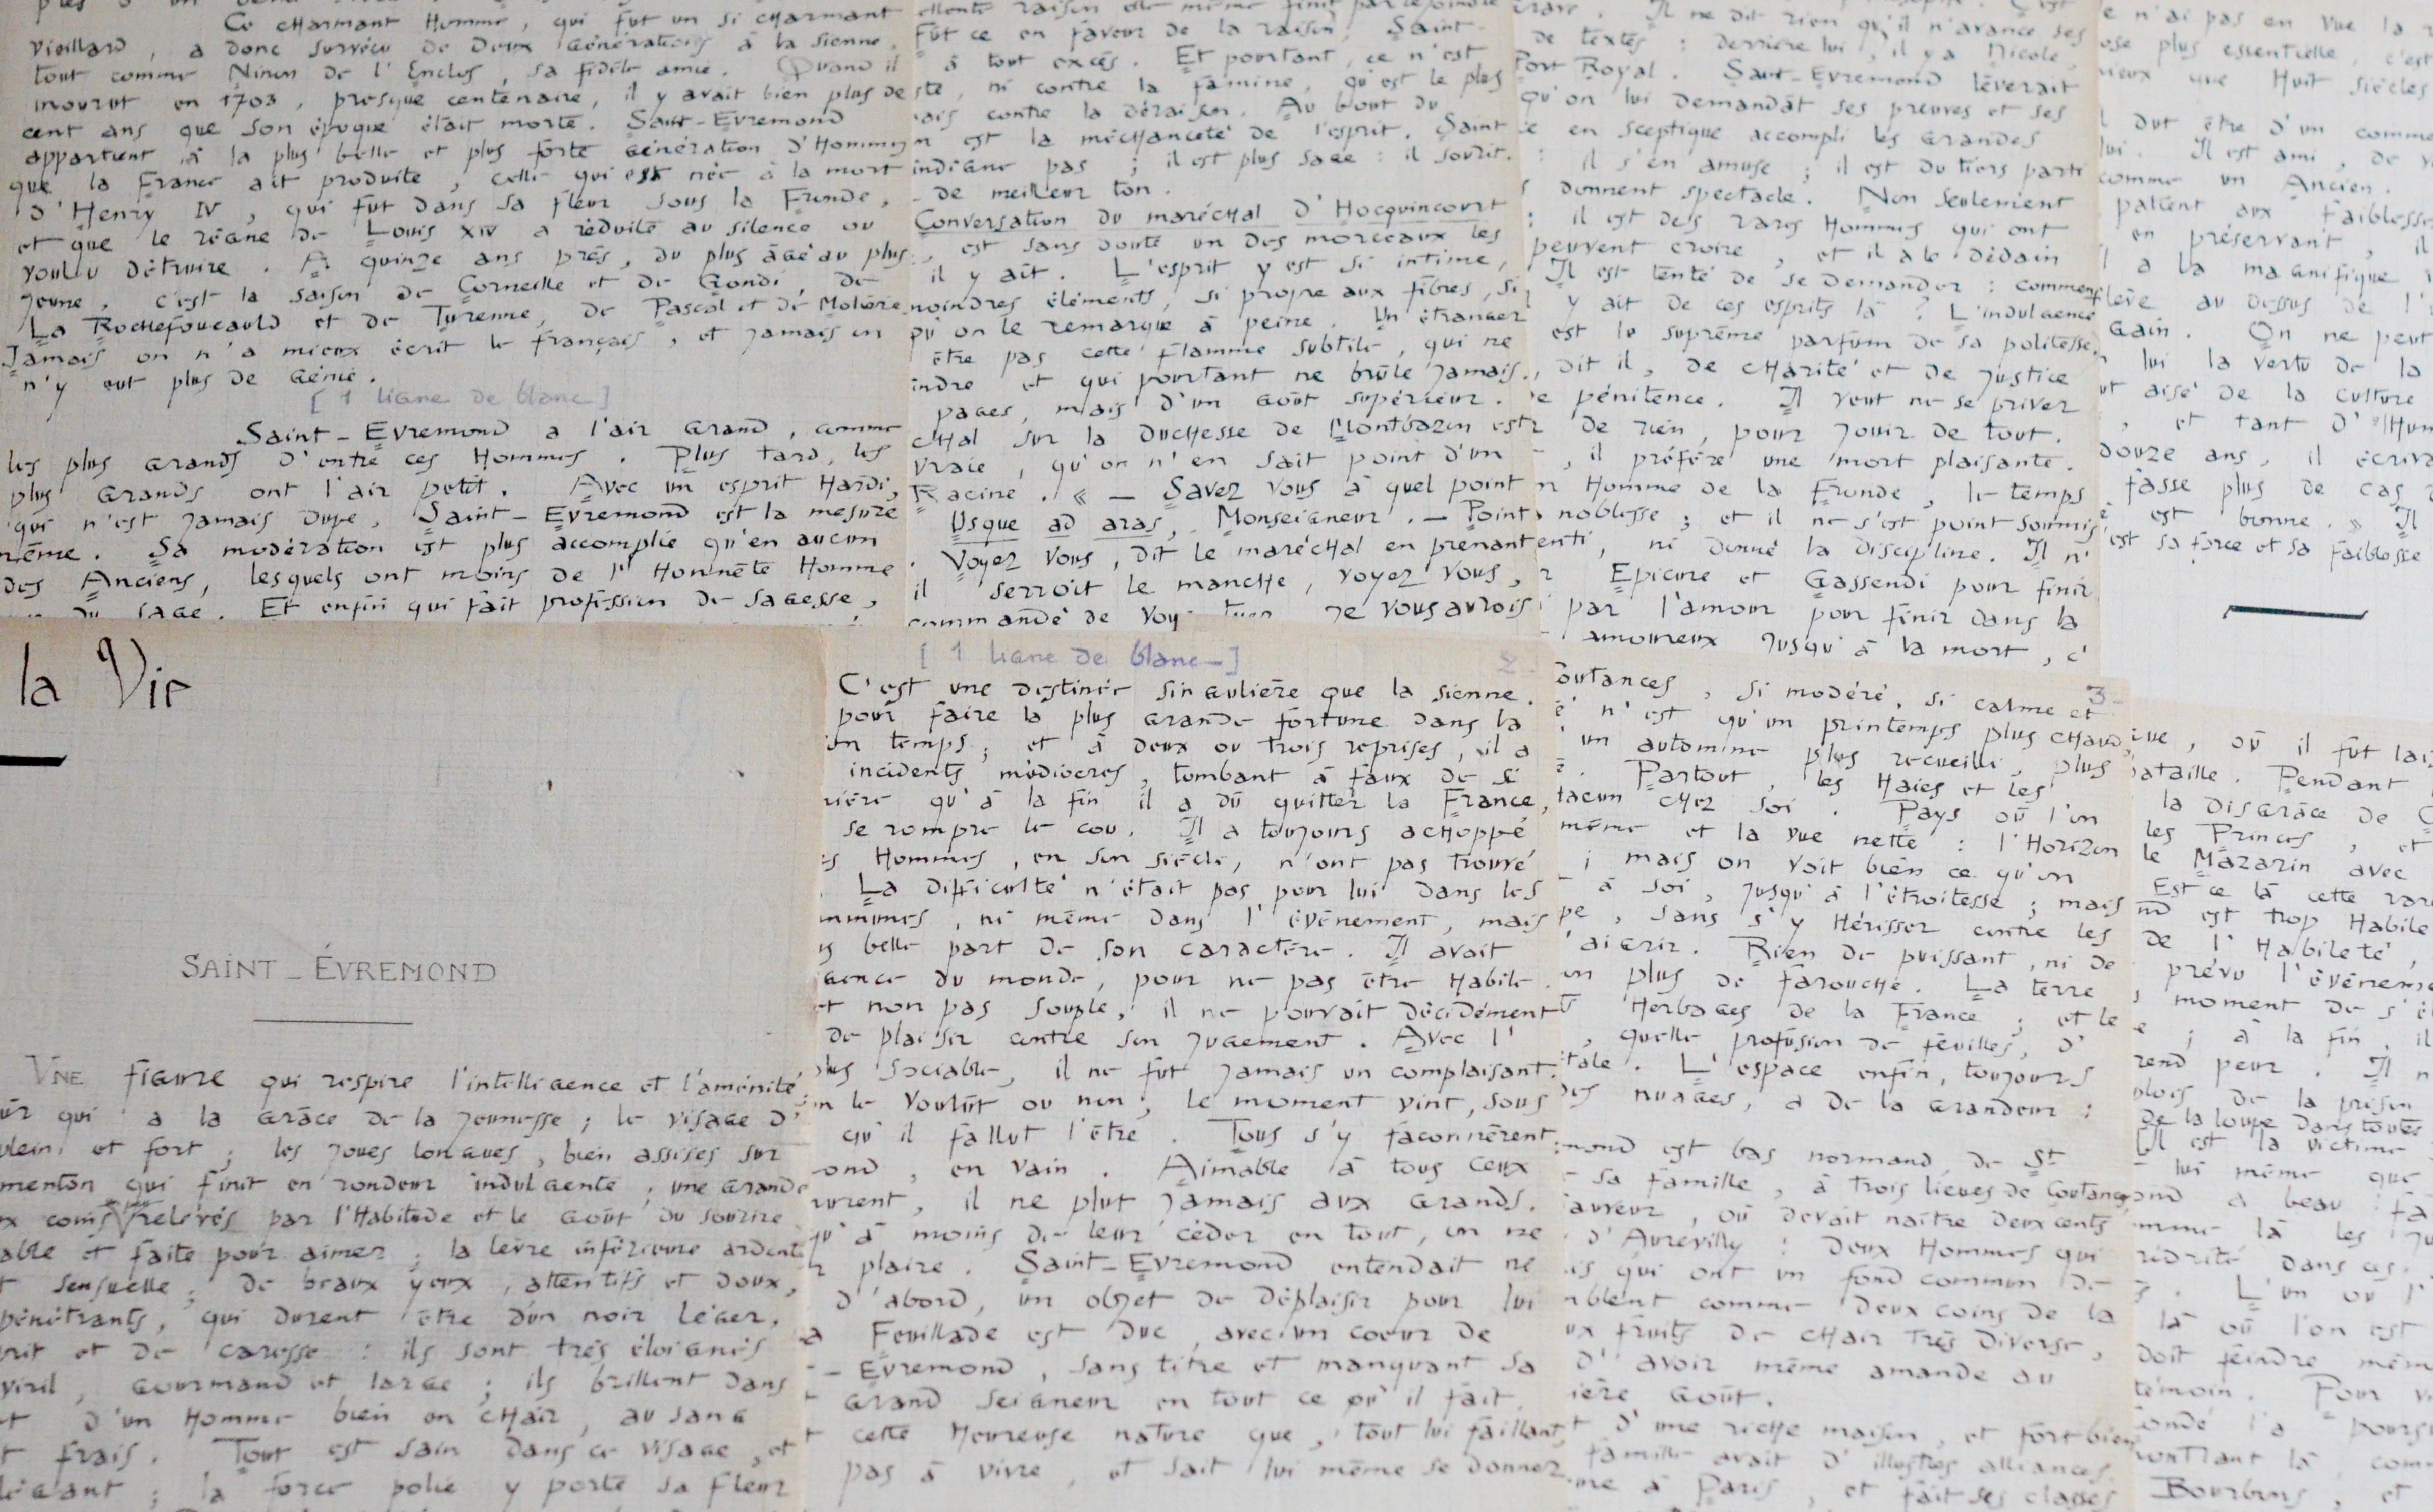 Ce charmant Homme, qui fut un si charmant
vieillard, a donc survécu de deux générations à la sienne,
tout comme Ninon de l'Enclos, sa fidèle amie. Quand il
mourut en 1703, presque centenaire, il y avait bien plus de
cent ans que son époque était morte. Saint-Evremond
appartient à la plus belle et plus forte génération d'Hommes
que la France ait produite, celle qui est née à la mort
d'Henry IV, qui fut dans sa fleur sous la Fronde,
et que le règne de Louis XIV a réduite au silence ou
voulu détruire. A quinze ans près, du plus âgé au plus
jeune, c'est la saison de Corneille et de Gondi, de
La Rochefoucauld et de Turenne, de Pascal et de Molière.
Jamais on n'a mieux écrit le français, et jamais on
n'y eut plus de génie.
[1 ligne de blanc]
Saint-Evremond a l'air grand, comme
les plus grands d'entre ces Hommes. Plus tard, les
plus grands ont l'air petit. Avec un esprit Hardi,
qui n'est jamais dupe, Saint-Evremond est la mesure
même. Sa modération est plus accomplie qu'en aucun
des Anciens, lesquels ont moins de l'Honnête Homme
du sage. Et enfin qui fait profession de sagesse,
fût ce en faveur de la raison, Saint-
à tout excès. Et pourtant, ce n'est
ste, ni contre la famine, qu'est le plus
ais contre la déraison. Au bout du
n est la méchanceté de l'esprit. Saint
indigne pas ; il est plus sage : il sourit.
de meilleur ton.
Conversation du maréchal d'Hocquincourt
, est sans doute un des morceaux les
il y ait. L'esprit y est si intime,
moindres éléments, si propre aux fibres, si
qu'on le remarque à peine. Un étranger
être pas cette flamme subtile, qui ne
indre et qui pourtant ne brûle jamais.
pages, mais d'un goût supérieur.
chal sur la duchesse de Montbazon est
vraie, qu'on n'en sait point d'un
Racine. « — Savez vous à quel point
Usque ad aras, Monseigneur. — Point
. Voyez vous, dit le maréchal en prenant
il serroit le manche, voyez vous,
commandé de vou je vous aurois
Il ne dit rien qu'il n'avance ses
de textes : derrière lui, il y a Nicole,
Port Royal. Saint-Evremond lèverait
qu'on lui demandât ses preuves et ses
e en sceptique accompli les grandes
: il s'en amuse ; il est du tiers parti
donnent spectacle. Non seulement
: il est des rares Hommes qui ont
peuvent croire, et il a le dédain
Il est tenté de se demander : comment
y ait de ces esprits là ? L'indulgence
est le suprême parfum de sa politesse.
, dit il, de charité et de justice
e pénitence. Il veut ne se priver
de rien, pour jouir de tout.
, il préfère une mort plaisante.
n Homme de la Fronde, le temps
noblesse ; et il ne s'est point soumis
enti, ni donné la discipline. Il n'
Epicure et Gassendi pour finir
par l'amour pour finir dans la
amoureux jusqu'à la mort, c'
e n'ai pas en vue la
ose plus essentielle, c'est
rieux que Huit siècles
dut être d'un comme
lui. Il est ami, de
comme un Ancien.
patient aux faiblesses
en préservant, il
a la magnifique
élève au dessus de l'
Gain. On ne peut
lui la vertu de la
ut aisé de la culture
, et tant d'Hum
douze ans, il écriva
fasse plus de cas
est bonne. » Il
est sa force et sa faiblesse
la Vie
SAINT-ÉVREMOND
UNE figure qui respire l'intelligence et l'aménité
ûr qui a la grâce de la jeunesse ; le visage d'
plein et fort ; les joues longues, bien assises sur
menton qui finit en rondeur indulgente ; une grande
x coins relevés par l'Habitude et le goût du sourire
able et faite pour aimer ; la lèvre inférieure ardente
t sensuelle ; de beaux yeux, attentifs et doux,
pénétrants, qui durent être d'un noir léger,
rit et de caresse : ils sont très éloignés
viril, gourmand et large ; ils brillent dans
t d'un Homme bien en chair, au sang
t frais. Tout est sain dans ce visage, et
légant ; la force polie y porte sa fleur
[1 ligne de blanc] 2
C'est une destinée singulière que la sienne.
pour faire la plus grande fortune dans la
on temps ; et à deux ou trois reprises, il a
incidents médiocres, tombant à faux de si
rière qu'à la fin il a dû quitter la France,
se rompre le cou. Il a toujours achoppé
s Hommes, en son siècle, n'ont pas trouvé
. La difficulté n'était pas pour lui dans les
mmmes, ni même dans l'événement, mais
s belle part de son caractère. Il avait
igence du monde, pour ne pas être Habile.
et non pas souple, il ne pouvait décidément
de plaisir contre son jugement. Avec l'
plus sociable, il ne fut jamais un complaisant.
n le voulût ou non, le moment vint, sous
qu'il fallut l'être. Tous s'y façonnèrent
ond, en vain. Aimable à tous ceux
nurent, il ne plut jamais aux grands.
qu'à moins de leur céder en tout, on ne
r plaire. Saint-Evremond entendait ne
d'abord, un objet de déplaisir pour lui
a Feuillade est duc, avec un coeur de
-Evremond, sans titre et manquant sa
grand seigneur en tout ce qu'il fait.
t cette Heureuse nature que, tout lui faillant,
pas à vivre, et sait lui même se donner
3
outances, si modéré, si calme et
é n'est qu'un printemps plus chaud,
un automne plus recueilli, plus
é. Partout, les Haies et les
tacun chez soi. Pays où l'on
même et la vue nette : l'Horizon
; mais on voit bien ce qu'on
à soi, jusqu'à l'étroitesse ; mais
pe, sans s'y Hérisser contre les
'aigrir. Rien de puissant, ni de
on plus de farouche. La terre
ts Herbages de la France ; et le
, quelle profusion de feuilles, d'
tale. L'espace enfin, toujours
des nuages, a de la grandeur :
mond est bas normand, de St
sa famille, à trois lieues de Coutances
auveur, où devait naître deux cents
d'Aurevilly : deux Hommes qui
is qui ont un fond commun de
mblent comme deux coins de la
ux fruits de chair très diverse,
d'avoir même amande au
ière goût.
t d'une riche maison, et fort bien
famille avait d'illustres alliances
me à Paris, et fait ses classes
gue, où il fut lais
bataille. Pendant
la disgrâce de C
les Princes, et
le Mazarin avec
Est ce là cette rar
nd est trop Habile
de l'Habileté,
prévu l'événeme
moment de s'é
e ; à la fin, il
rend peur. Il n
plois de la présen
de la loupe dans toutes
Il est la victime
lui même que
ond a beau fa
mme là les ju
rédrité dans ces
L'un ou l'
là où l'on est
doit feindre mêm
témoin. Pour v
ondé l'a pours
montrant là com
Bourbons, et